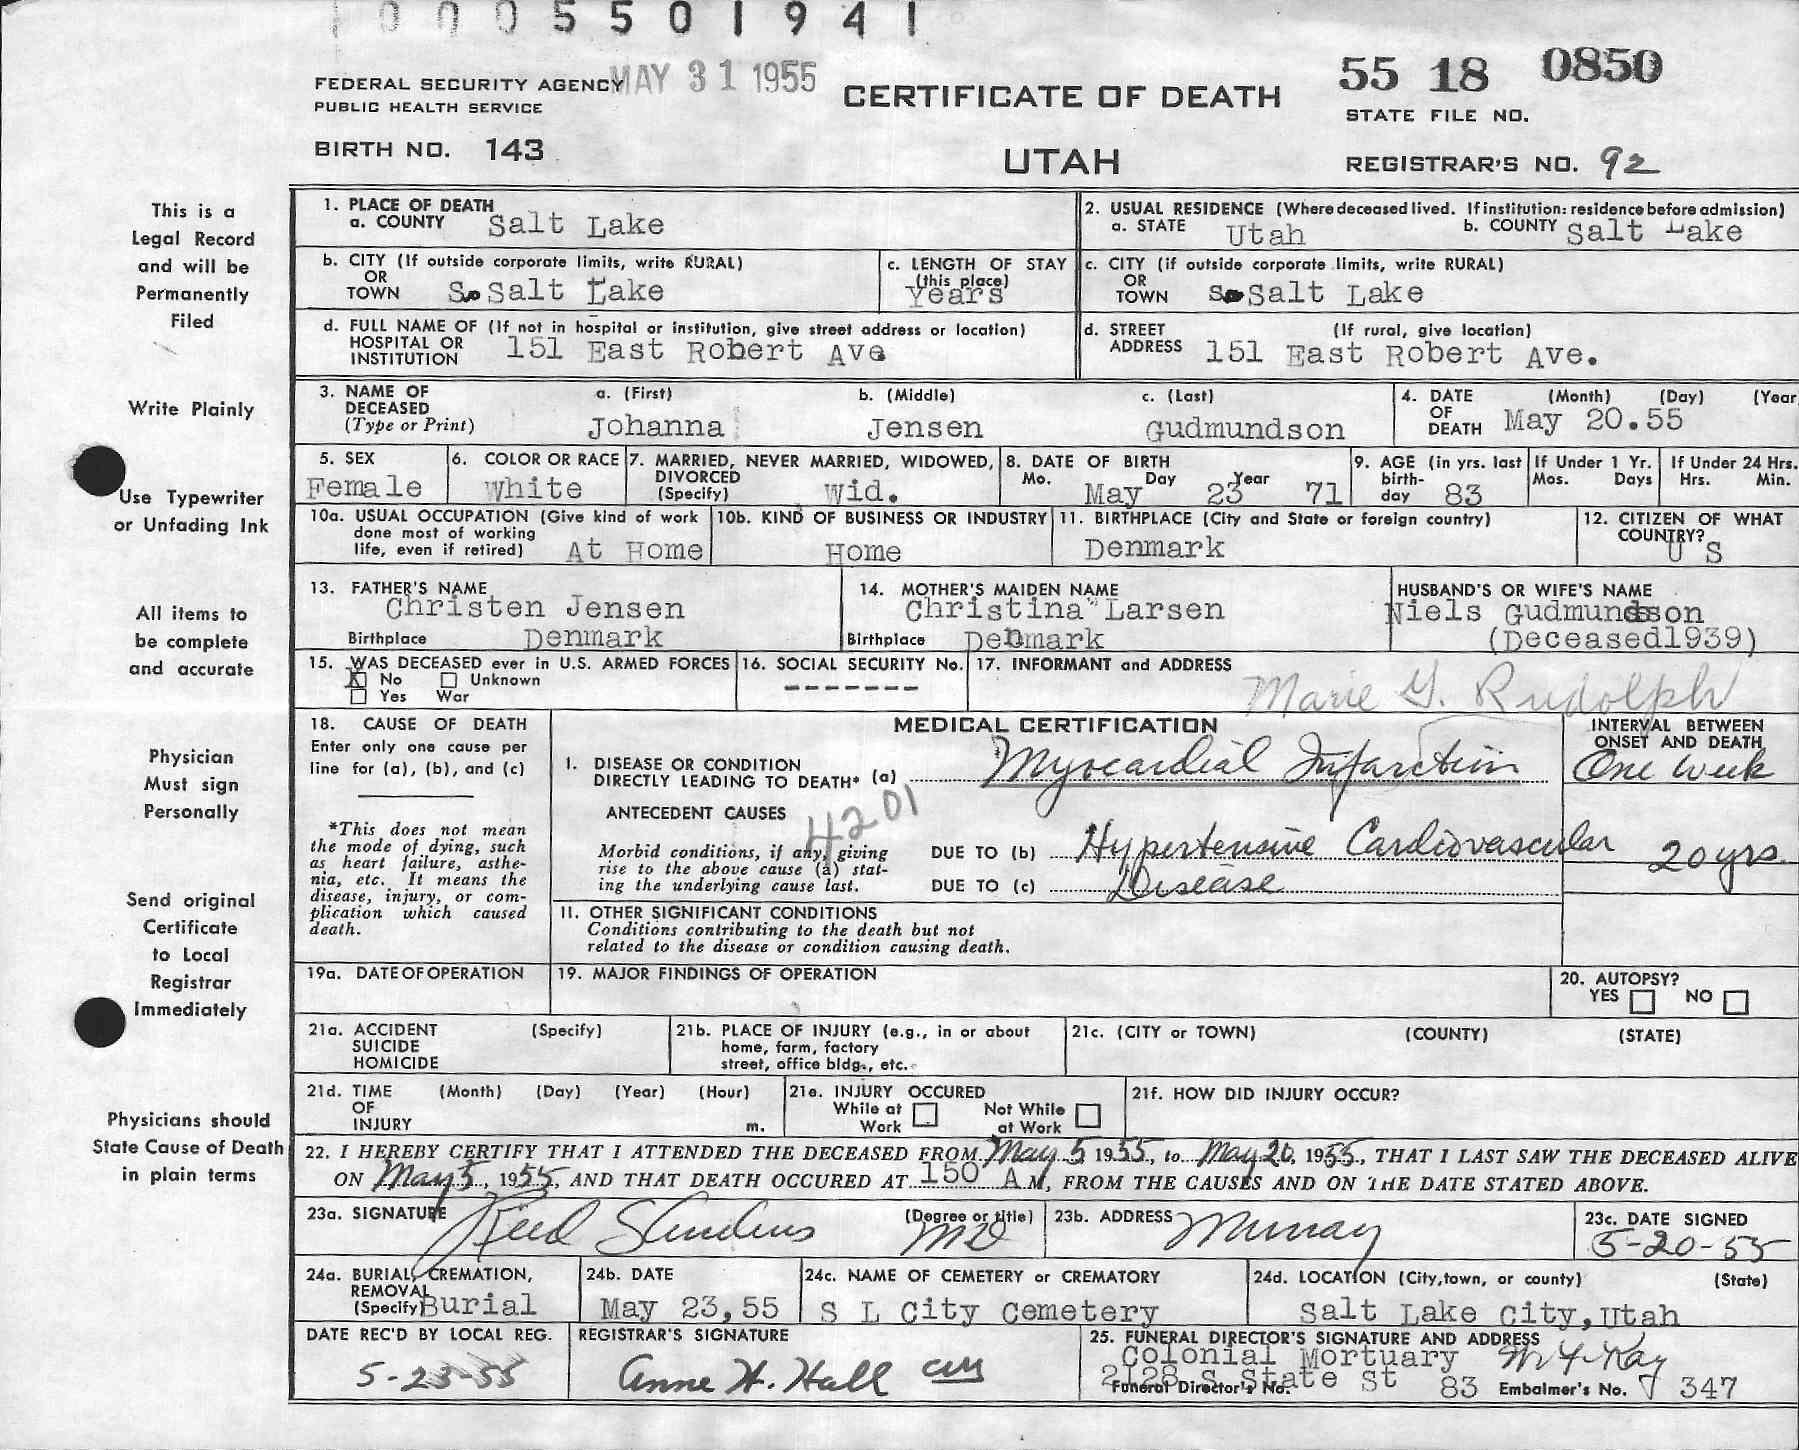 0005501941
FEDERAL SECURITY AGENCY MAY 31 1955
PUBLIC HEALTH SERVICE
BIRTH NO. 143
CERTIFICATE OF DEATH
UTAH
55 18 0850
STATE FILE NO.
REGISTRAR'S NO. 92
This is a
Legal Record
and will be
Permanently
Filed
Write Plainly
Use Typewriter
or Unfading Ink
All items to
be complete
and accurate
Physician
Must sign
Personally
Send original
Certificate
to Local
Registrar
Immediately
Physicians should
State Cause of Death
in plain terms
1. PLACE OF DEATH
a. COUNTY Salt Lake
2. USUAL RESIDENCE (Where deceased lived. If institution: residence before admission)
a. STATE Utah b. COUNTY Salt Lake
b. CITY (If outside corporate limits, write RURAL)
OR
TOWN So Salt Lake
c. LENGTH OF STAY
(this place)
Years
c. CITY (if outside corporate limits, write RURAL)
OR
TOWN So Salt Lake
d. FULL NAME OF (If not in hospital or institution, give street address or location)
HOSPITAL OR
INSTITUTION 151 East Robert Ave
d. STREET (If rural, give location)
ADDRESS 151 East Robert Ave.
3. NAME OF
DECEASED
(Type or Print)
a. (First) b. (Middle) c. (Last)
Johanna Jensen Gudmundson
4. DATE (Month) (Day) (Year
OF
DEATH May 20.55
5. SEX
Female
6. COLOR OR RACE
White
7. MARRIED, NEVER MARRIED, WIDOWED,
DIVORCED
(Specify) Wid.
8. DATE OF BIRTH
Mo. Day Year
May 23 71
9. AGE (in yrs. last
birth-
day 83
If Under 1 Yr.
Mos. Days
If Under 24 Hrs.
Hrs. Min.
10a. USUAL OCCUPATION (Give kind of work
done most of working
life, even if retired) At Home
10b. KIND OF BUSINESS OR INDUSTRY
Home
11. BIRTHPLACE (City and State or foreign country)
Denmark
12. CITIZEN OF WHAT
COUNTRY?
U S
13. FATHER'S NAME
Christen Jensen
Birthplace Denmark
14. MOTHER'S MAIDEN NAME
Christina Larsen
Birthplace Denmark
HUSBAND'S OR WIFE'S NAME
Niels Gudmundson
(Deceased1939)
15. WAS DECEASED ever in U.S. ARMED FORCES
X No Unknown
Yes War
16. SOCIAL SECURITY No.
-------
17. INFORMANT and ADDRESS
Marie G. Rudolph
18. CAUSE OF DEATH
Enter only one cause per
line for (a), (b), and (c)
*This does not mean
the mode of dying, such
as heart failure, asthe-
nia, etc. It means the
disease, injury, or com-
plication which caused
death.
MEDICAL CERTIFICATION
I. DISEASE OR CONDITION
DIRECTLY LEADING TO DEATH* (a) Myocardial Infarction
INTERVAL BETWEEN
ONSET AND DEATH
One Week
ANTECEDENT CAUSES
4201
Morbid conditions, if any, giving
rise to the above cause (a) stat-
ing the underlying cause last.
DUE TO (b) Hypertensive Cardiovascular 20 yrs.
DUE TO (c) Disease
II. OTHER SIGNIFICANT CONDITIONS
Conditions contributing to the death but not
related to the disease or condition causing death.
19a. DATE OF OPERATION
19. MAJOR FINDINGS OF OPERATION
20. AUTOPSY?
YES NO
21a. ACCIDENT (Specify)
SUICIDE
HOMICIDE
21b. PLACE OF INJURY (e.g., in or about
home, farm, factory
street, office bldg., etc.
21c. (CITY or TOWN) (COUNTY) (STATE)
21d. TIME (Month) (Day) (Year) (Hour)
OF
INJURY m.
21e. INJURY OCCURED
While at Not While
Work at Work
21f. HOW DID INJURY OCCUR?
22. I HEREBY CERTIFY THAT I ATTENDED THE DECEASED FROM May 5 1955, to May 20, 1955, THAT I LAST SAW THE DECEASED ALIVE
ON May 5, 1955, AND THAT DEATH OCCURED AT 150 A M, FROM THE CAUSES AND ON THE DATE STATED ABOVE.
23a. SIGNATURE (Degree or title)
MD
23b. ADDRESS Murray
23c. DATE SIGNED
5-20-55
24a. BURIAL, CREMATION,
REMOVAL
(Specify) Burial
24b. DATE
May 23,55
24c. NAME OF CEMETERY or CREMATORY
S L City Cemetery
24d. LOCATION (City, town, or county) (State)
Salt Lake City,Utah
DATE REC'D BY LOCAL REG.
5-23-55
REGISTRAR'S SIGNATURE
Anne H. Hall
25. FUNERAL DIRECTOR'S SIGNATURE AND ADDRESS
Colonial Mortuary
2128 S State St
Funeral Director's No. 83 Embalmer's No. 347